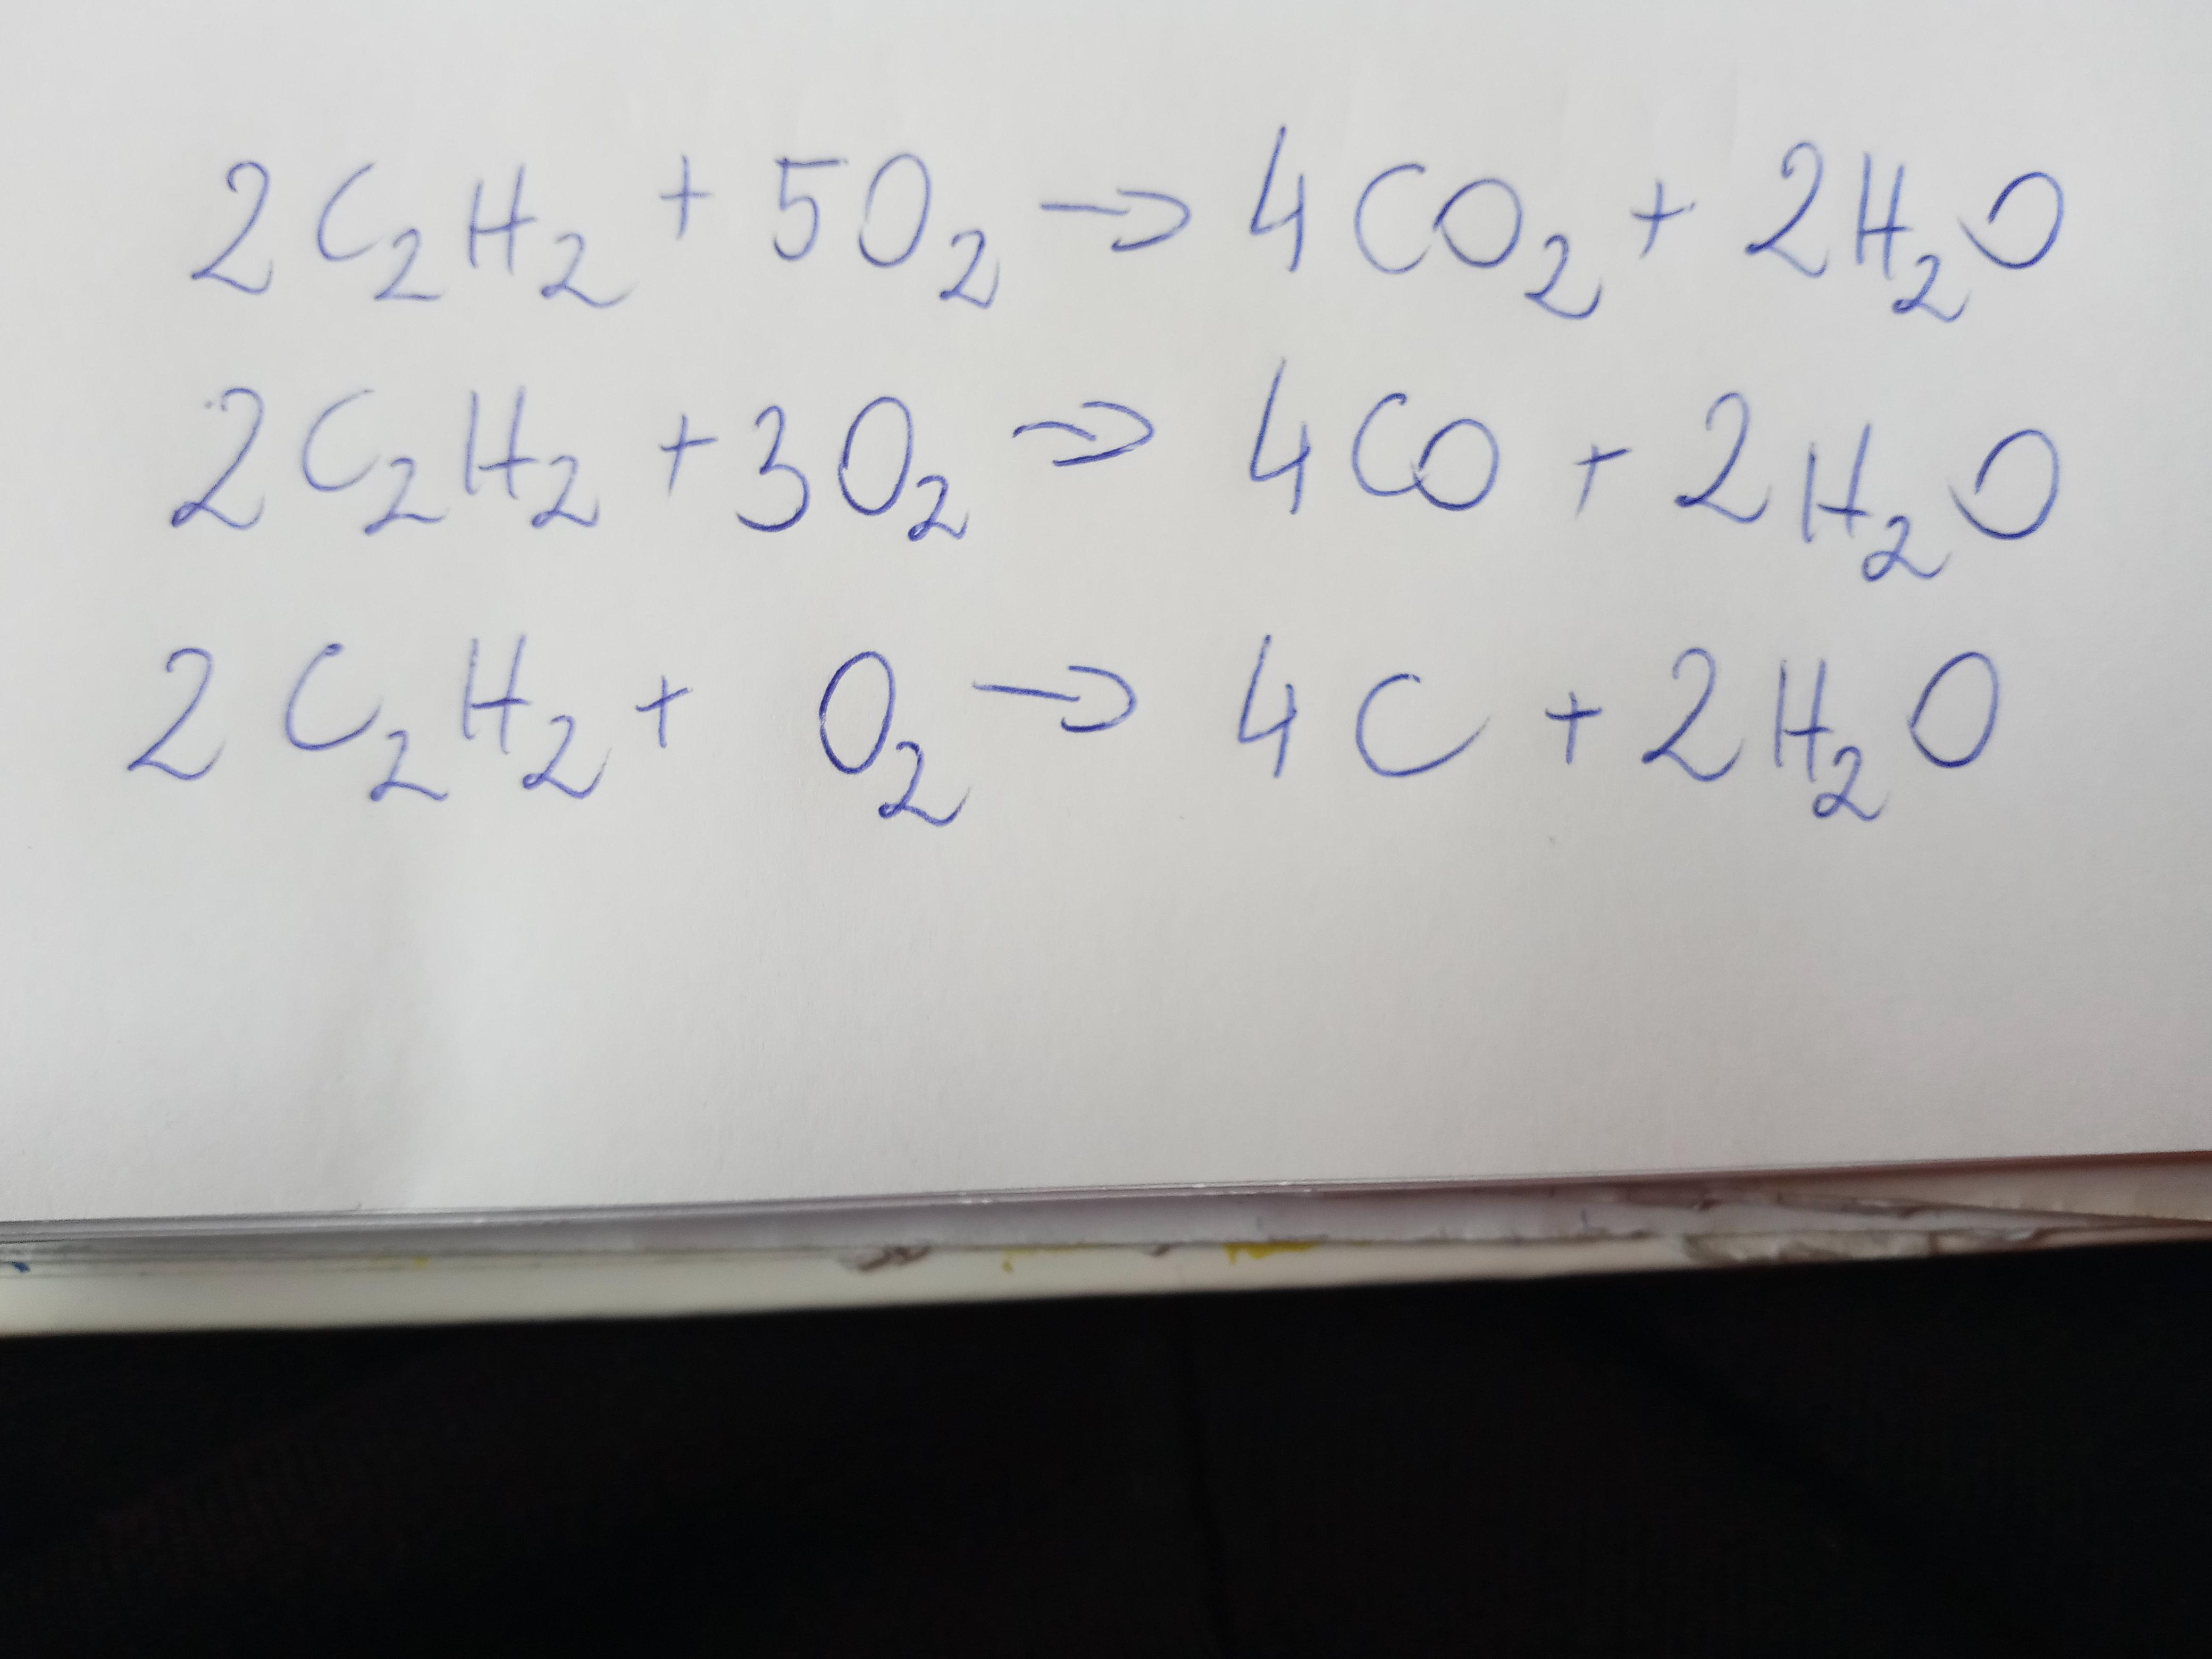 2C₂H₂ + 5O₂ → 4CO₂ + 2H₂O
2C₂H₂ + 3O₂ → 4CO + 2H₂O
2C₂H₂ + O₂ → 4C + 2H₂O